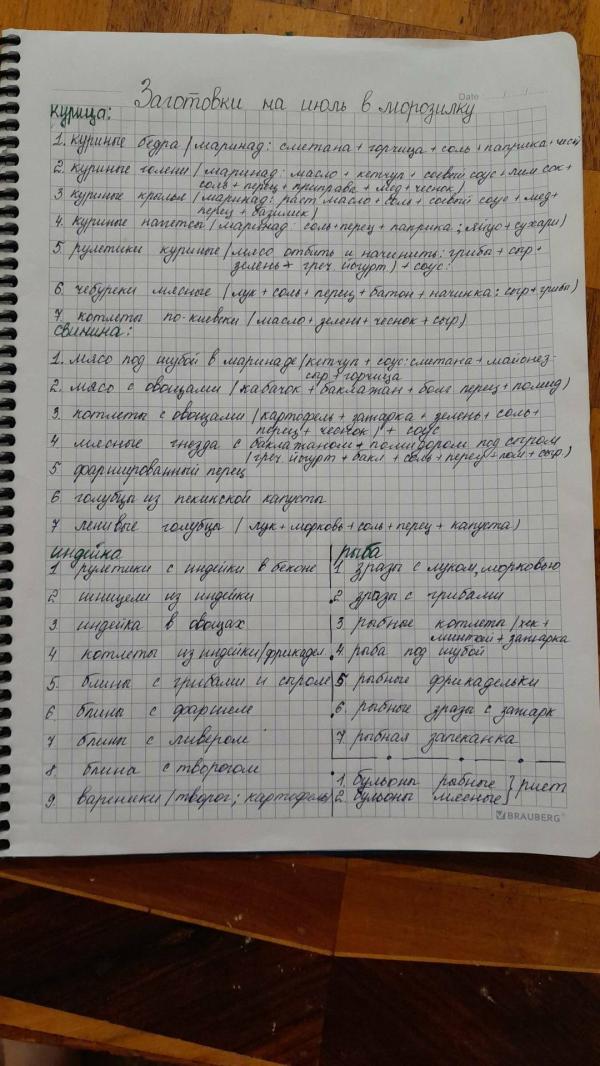 Date
Заготовки на июль в морозилку
курица:
1. куриные бедра (маринад: сметана + горчица + соль + паприка + чесн
2. куриные голени (маринад: масло + кетчуп + соевый соус + лим сок +
соль + перец + приправа + мед + чеснок)
3 куриные крылья (маринад: раст масло + соль + соевый соус + мед +
перец + базилик)
4. куриные нагетсы (маринад: соль + перец + паприка; яйцо + сухари)
5. рулетики куриные (мясо отбить и начинить: грибы + сыр +
зелень + греч йогурт) + соус:
6. чебуреки мясные (лук + соль + перец + батон + начинка: сыр + грибы)
7. котлеты по-киевски (масло + зелень + чеснок + сыр)
свинина:
1. мясо под шубой в маринаде (кетчуп + соус: сметана + майонез.
сыр + горчица
2. мясо с овощами (кабачок + баклажан + болг перец + помид)
3. котлеты с овощами (картофель + зажарка + зелень + соль +
перец + чеснок) + соус
4 мясные гнезда с баклажаном + помидором под сыром
(греч йогурт + бакл + соль + перец + пом + сыр)
5 фаршированный перец
6 голубцы из пекинской капусты
7 ленивые голубцы (лук + морковь + соль + перец + капуста)
индейка
1 рулетики с индейки в беконе
2 шницели из индейки
3. индейка в овощах
4 котлеты из индейки/фрикадел.
5. блины с грибами и сыром
6. блины с фаршем
7 блины с ливером
8. блина с творогом
9. вареники (творог; картофель)
рыба
1 зразы с луком, морковью
2 зразы с грибами
3. рыбные котлеты (хек +
минтай + зажарка
4. рыба под шубой
5 рыбные фрикадельки
6. рыбные зразы с зажарк
7. рыбная запеканка
1. бульоны рыбные } риет
2. бульоны мясные
BRAUBERG